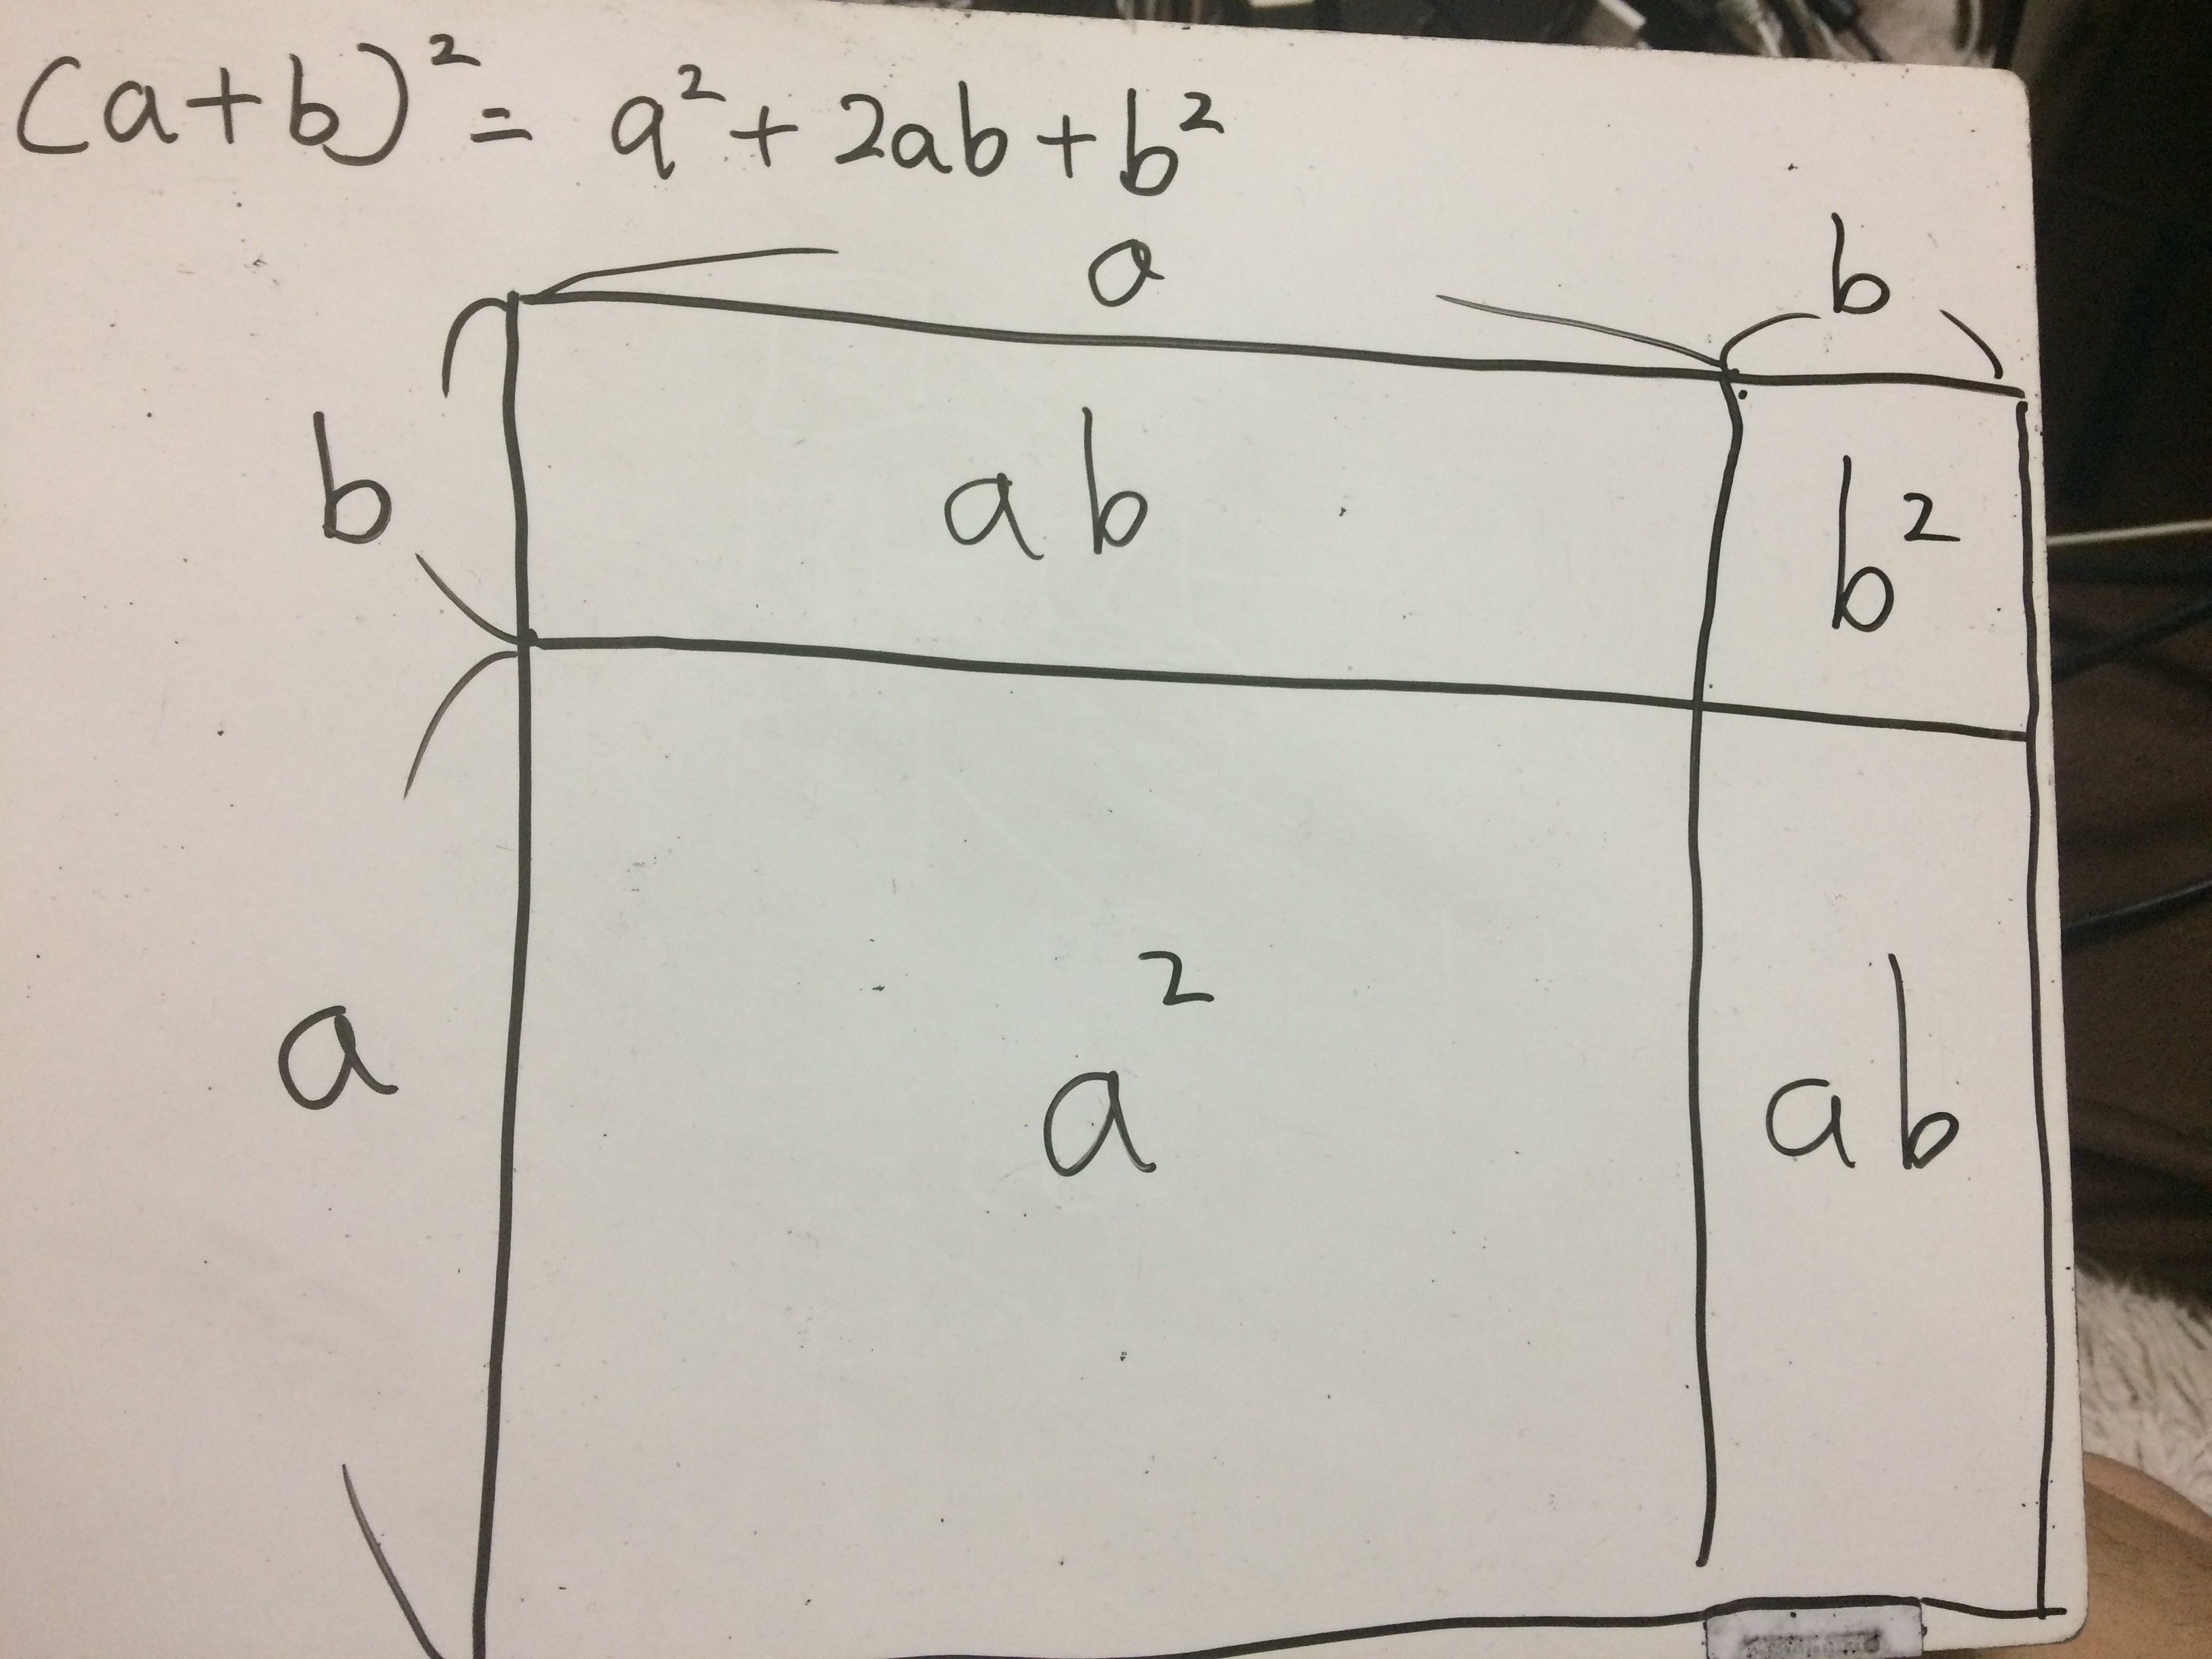 (a+b)² = a² + 2ab + b²
a b
b ab b²
a a² ab